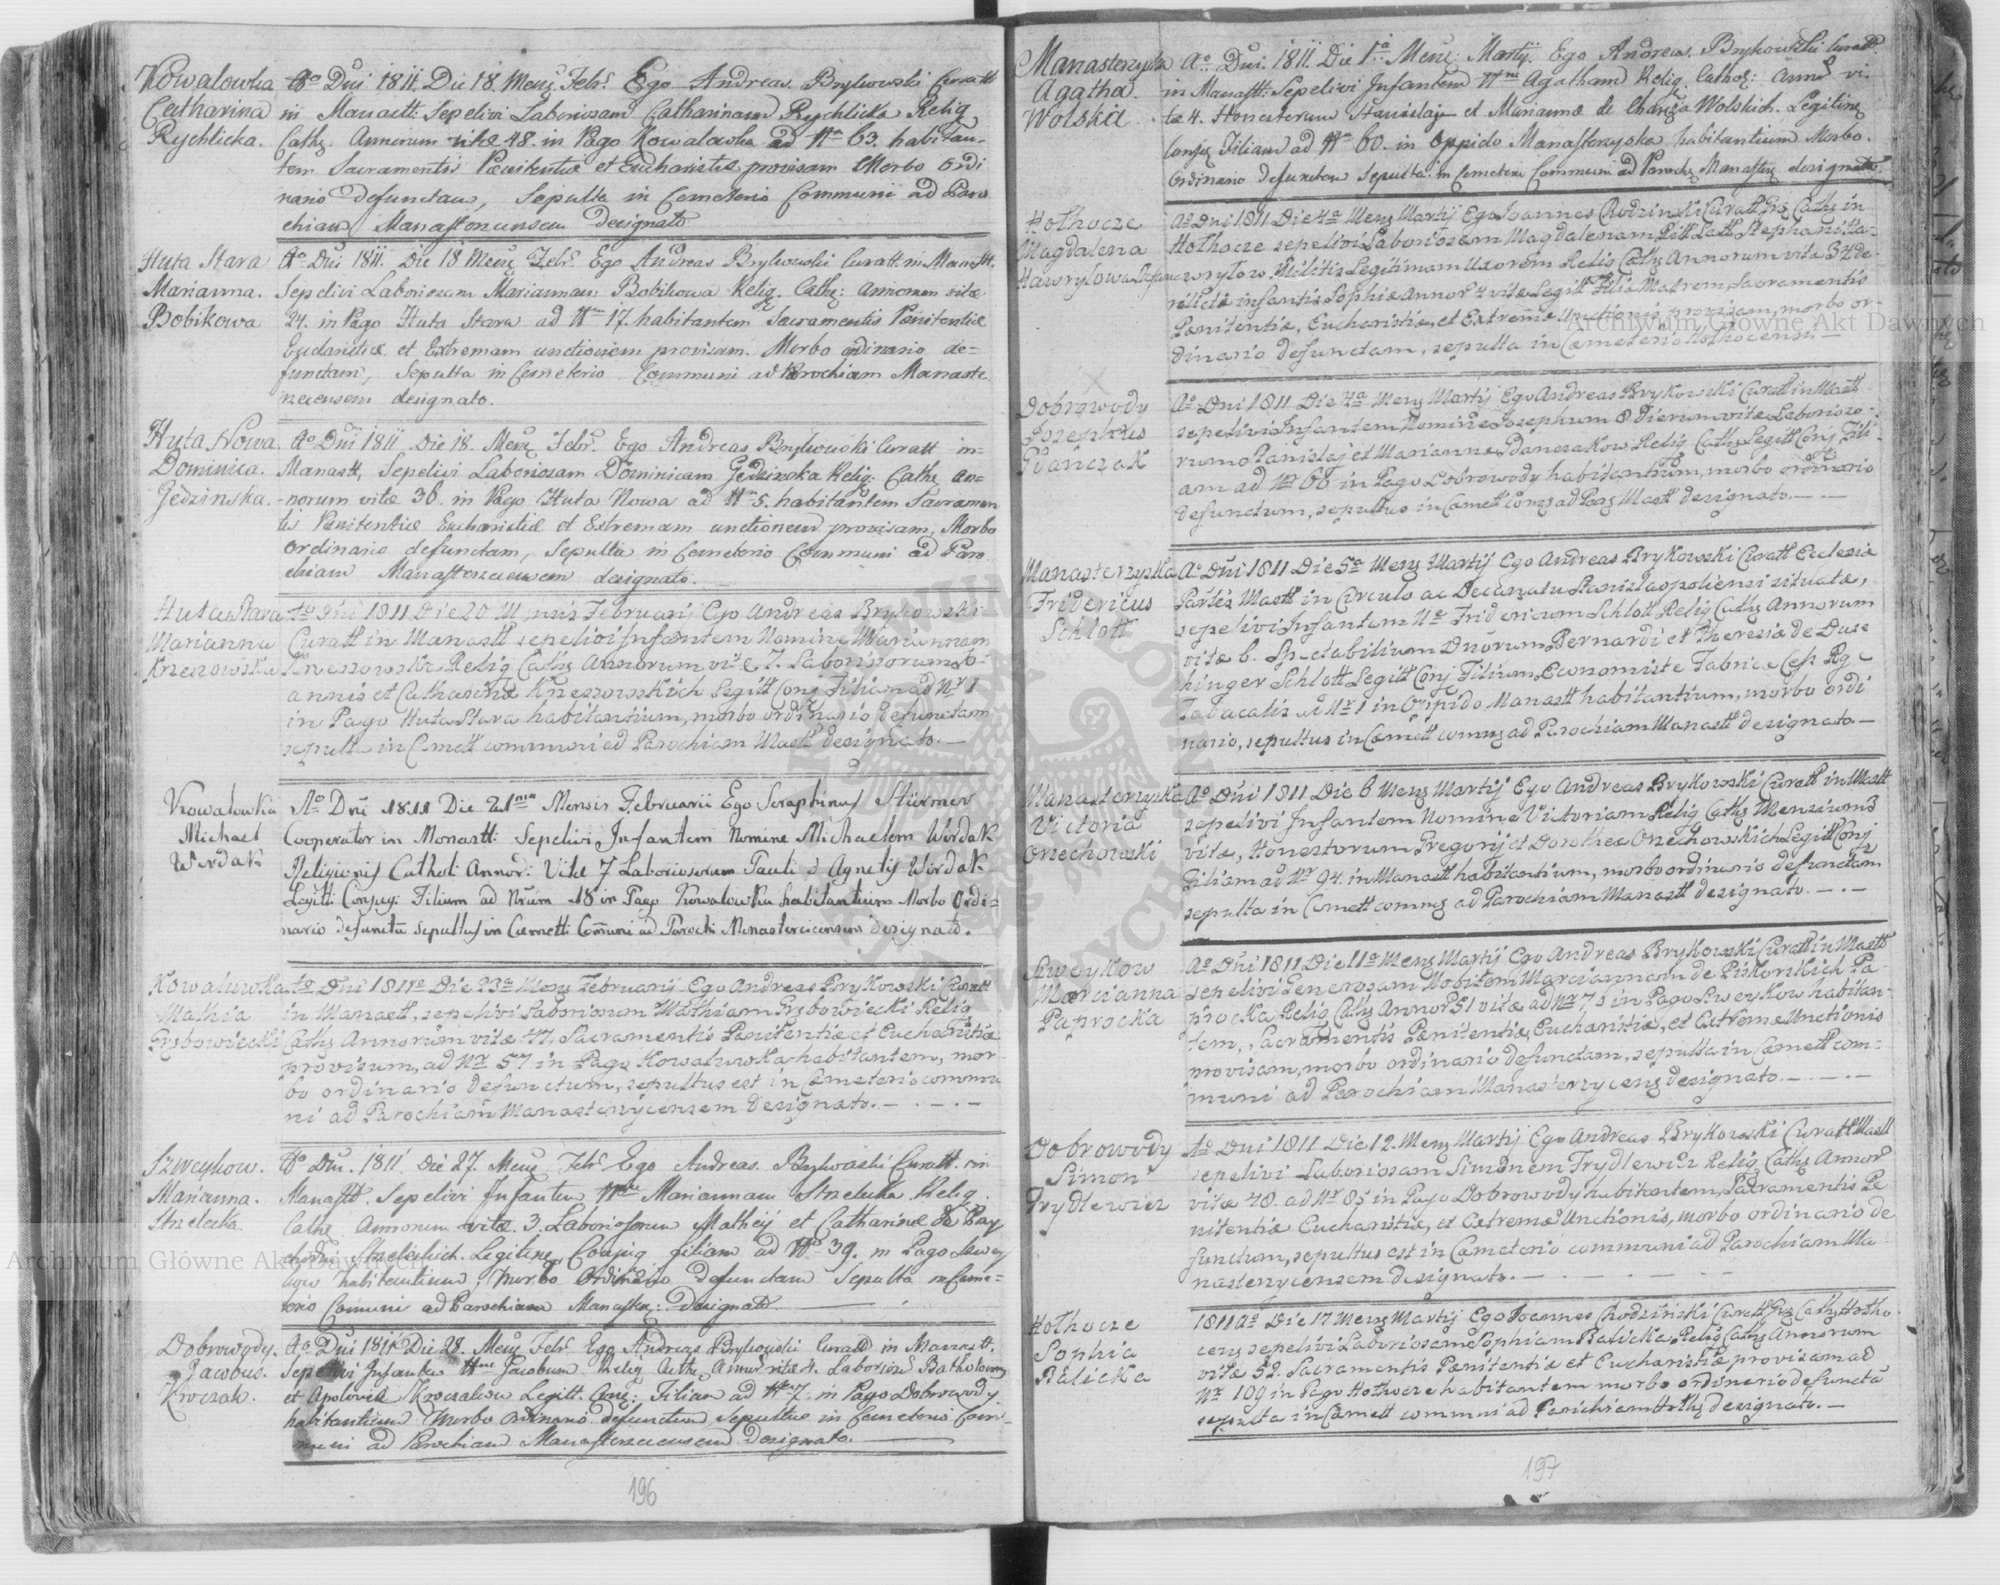 Kowalowka
Catharina
Rychlicka.
Ao Dni 1811. Die 18. Menš Febr. Ego Andreas Brykowski Curatt
in Manastt: Sepelivi Laboriosam Catharinam Rychlicka Relig
Cathz. Annorum vitæ 48. in Pago Kowalowka ad Nrm 63. habitan-
tem Sacramentis Pœnitentiæ et Eucharistiæ provisam Morbo Ordi
nario defunctam, Sepulta in Cemeterio Communi ad Paro
chiam Manasterzecensem designato
Huta Stara
Marianna.
Bobikowa
Ao Dni 1811. Die 18 Menš Febr. Ego Andreas Brykowski Curatt. in Manastt.
Sepelivi Laboriosam Mariannam Bobikowa Relig. Cathz: Annorum vitæ
24. in Pago Huta Stara ad Nrm 17. habitantem Sacramentis Pœnitentiæ
Eucharistiæ et Extremam unctionem provisam. Morbo ordinario de=
functam, Sepulta in Cemeterio Communi ad Parochiam Manaste
rzecensem designato.
Huta Nowa
Dominica.
Gedzinska.
Ao Dni 1811 Die 18. Menš Febr. Ego Andreas Brykowski Curatt in-
Manastt, Sepelivi Laboriosam Dominicam Gedzinska Relig: Cathz An-
-norum vitæ 38. in Pago Huta Nowa ad Nrm 5. habitantem Sacramen
tis Pœnitentiæ Eucharistiæ et Extremam unctionem provisam, Morbo
Ordinario defunctam, Sepulta in Cemeterio Communi ad Paro
chiam Manasterzecensem designato.
Huta Stara
Marianna
Krzezowska
Ao Dni 1811 Die 20 Mensis Februarij Ego Andreas Brykowski
Curatt in Manastt sepelivi Infantem Nomine Mariannam
Krzezowska Relig Cathz Annorum vitæ 7. Laboriosorum Jo-
annis et Catharinæ Krzezowskich Legitt Conj Filiam ad Nr 1
in Pago Huta Stara habitantium, morbo ordinario defunctam
sepulta in Cmett communi ad Parochiam Mastt designato. —
Kowalowka
Michael
Wirdak
Ao Dni 1811 Die 21ma Mensis Februarii Ego Seraphinus Stürmer
Cooperator in Monastt: Sepelivi Infantem Nomine Michaelem Wirdak
Religionis Catholi: Annor: Vitæ 7 Laboriosorum Pauli & Agnetis Wirdak
Legitt: Conjug: Filium ad Nrum 18 in Pago Kowalowka habitantium Morbo Ordi=
nario defunctu sepultus in Cœmett: Com̄uni ad Parochi Monasterciensem designato.
Kowaluwka
Mathia
Grzbowiecki
Ao Dni 1811o Die 23a Menz Februaris Ego Andreas Brykowski Curatt
in Manastt, sepelivi Laboriosum Mathiam Grzbowiecki Relig
Cathz Annorum vitæ 47. Sacramentis Pænitentiæ et Eucharistiæ
provisum, ad Nr 57 in Pago Kowaluwka habitantem, mor-
bo ordinario defunctum, sepultus est in Cœmeterio commu
ni ad Parochiam Manasterzycensem designato. — . — . —
Szweykow.
Marianna.
Strzelecka
Ao Dni. 1811 Die 27. Menš Febr. Ego Andreas. Brykowski Curatt. in
Manastt. Sepelivi Infantem Nne Mariannam Strzelecka Relig
Cathz Annorum vitæ. 3. Laboriosorum Matheij et Catharinæ de
Strzeleckich. Legitimz Conjug filiam ad Nr 39. in Pago Szwey
kow habitantium, Morbo Ordinario defunctam Sepulta in Ceme=
terio Comuni ad Parochiam Manastez: designato
Dobrowody.
Jacobus.
Kroczak.
Ao Dni 1811 Die 28. Menš Febr. Ego Andreas Brykowski Curatt in Manastt.
Sepelivi Infantem Nne Jacobum Relig Cathz Annor vitæ 4. Laborios Batholomej
et Apoloniæ Kroczakow Legitt. Conj: Filium ad Nr 7. in Pago Dobrowody
habitantium Morbo Ordinario defunctum, Sepultus in Cemeterio Com-
muni ad Parochiam Manasterzecensem Designato.
196
Manasterzyska
Agatha
Wolska
Ao. Dni. 1811. Die 1a Menš: Martij. Ego Andreas. Brykowski Curatt.
in Manastt: Sepelivi Infantem Nne Agatham Relig. Cathoz: Annor vi-
tæ 4. Honestorum Stanislai et Mariannæ de Wolskich. Legitimz
Conjuz Filiam ad Nrm 60. in Oppido Manasterzyska habitantium Morbo.
Ordinario defunctam Sepulta in Cemeterio Communi ad Paroch Manasterz designato.
Hołhocze
Magdalena
Hawryłowa
Ao Dni 1811 Die 4a Menz Martij Ego Joannes Chodzinski Curatt Cathz in
Hołhocze sepelivi Laboriosam Magdalenam Stephani Ha-
wryłow Militis Legitimam Uxorem Relig Cathz Annorum vitæ 32 de-
relictæ infantis Sophiæ Annor 4 vitæ Legitt Filiæ Matrem, Sacramentis
Pænitentiæ, Eucharistiæ, et Extremæ Unctionis provisam, morbo or-
dinario defunctam, sepulta in Cœmeterio Hołhocensi. —
Dobrowody
Josephus
Ao Dni 1811 Die 4a Menz Martij Ego Andreas Brykowski Curatt in Mastt
sepelivi Infantem Nomine Josephum 8 dierum vitæ Laborioso-
rum Stanislaj et Mariannæ Relig Cathz Legitt Conj Fili-
um ad Nr 66 in Pago Dobrowody habitantium, morbo ordinario
defunctum, sepultus in Cœmett ad Mastt designato. — . —
Manasterzyska
Fridericus
Schlott
Ao Dni 1811 Die 5a Menz Martij Ego Andreas Brykowski Curatt Ecclesiæ
Mastt in Circulo ac Decanatu Stanislaopoliensi situatæ,
sepelivi Infantem Ne Fridericum Schlott Relig Cathz Annorum
vitæ 6. Spectabilium Dnorum Bernardi et Theresiæ de
hinger Schlott Legitt Conj Filium, Economistæ Fabricæ
Tabacalis ad Nr 1 in Oppido Manastt habitantium, morbo ordi
nario, sepultus in Cœmett ad Parochiam Manastt designato. —
Manasterzyska
Victoria
Orzechowski
Ao Dni 1811 Die 6 Menz Martij Ego Andreas Brykowski Curatt in Mastt
sepelivi Infantem Nomine Victoriam Relig Cathz Mensium 3
vitæ, Honestorum Gregorij et Dorotheæ Orzechowskich Legitt Conj
Filiam ad Nr 94. in Manastt habitantium, morbo ordinario defunctam
sepulta in Cœmett ad Parochiam Manastt designato. — . —
Szweykow
Marcianna
Paprocka
Ao Dni 1811 Die 11a Menz Martij Ego Andreas Brykowski Curatt in Mastt
sepelivi Generosam Nobilem Marciannam de Piskorskich Pa-
procka Relig Cathz Annor 51 vitæ ad Nr 73 in Pago Szweykow habitan-
tem, Sacramentis Pænitentiæ, Eucharistiæ, et Extremæ Unctionis
provisam, morbo ordinario defunctam, sepulta in Cœmett com-
muni ad Parochiam Manasterzycens designato. — . — . —
Dobrowody
Simon
Frydlewicz
Ao Dni 1811 Die 12. Menz Martij Ego Andreas Brykowski Curatt Mastt
sepelivi Laboriosum Simonem Frydlewicz Relig Cathz Annor
vitæ 48. ad Nr 85 in Pago Dobrowody habitantem, Sacramentis Pæ
nitentiæ Eucharistiæ, et Extremæ Unctionis, morbo ordinario de
functum, sepultus est in Cœmeterio communi ad Parochiam Ma
nasterzycensem designato. — . — . —
Hołhocze
Sophia
Balicka
1811 Ao Die 17 Menz Martij Ego Joannes Chodziński Curatt Cathz Hołho-
cens sepelivi Laboriosam Sophiam Balicka Relig Cathz Annorum
vitæ 52. Sacramentis Pænitentiæ et Eucharistiæ provisam ad
Nr 109 in Pago Hołhocze habitantem morbo ordinario defuncta
sepulta in Cœmett communi ad Parichiam Hołhz designato. —
197
Archiwum Główne Akt Dawnych
Archiwum Główne Akt Dawnych